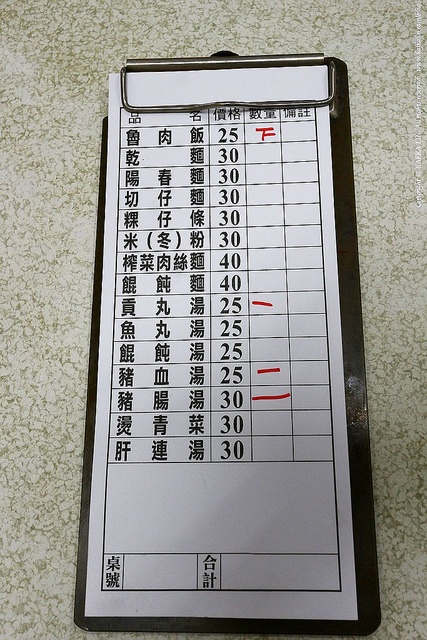 品名 價格 數量 備註
魯肉飯 25 下
乾麵 30
陽春麵 30
切仔麵 30
粿仔條 30
米(冬)粉 30
榨菜肉絲麵 40
餛飩麵 40
貢丸湯 25 一
魚丸湯 25
餛飩湯 25
豬血湯 25 一
豬腸湯 30 一
燙青菜 30
肝連湯 30
桌號 合計